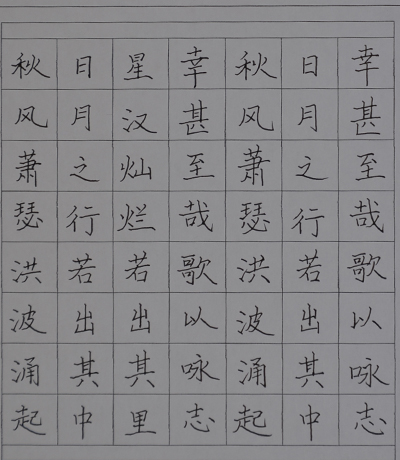 秋风萧瑟洪波涌起
日月之行若出其中
星汉灿烂若出其里
幸甚至哉歌以咏志
秋风萧瑟洪波涌起
日月之行若出其中
幸甚至哉歌以咏志